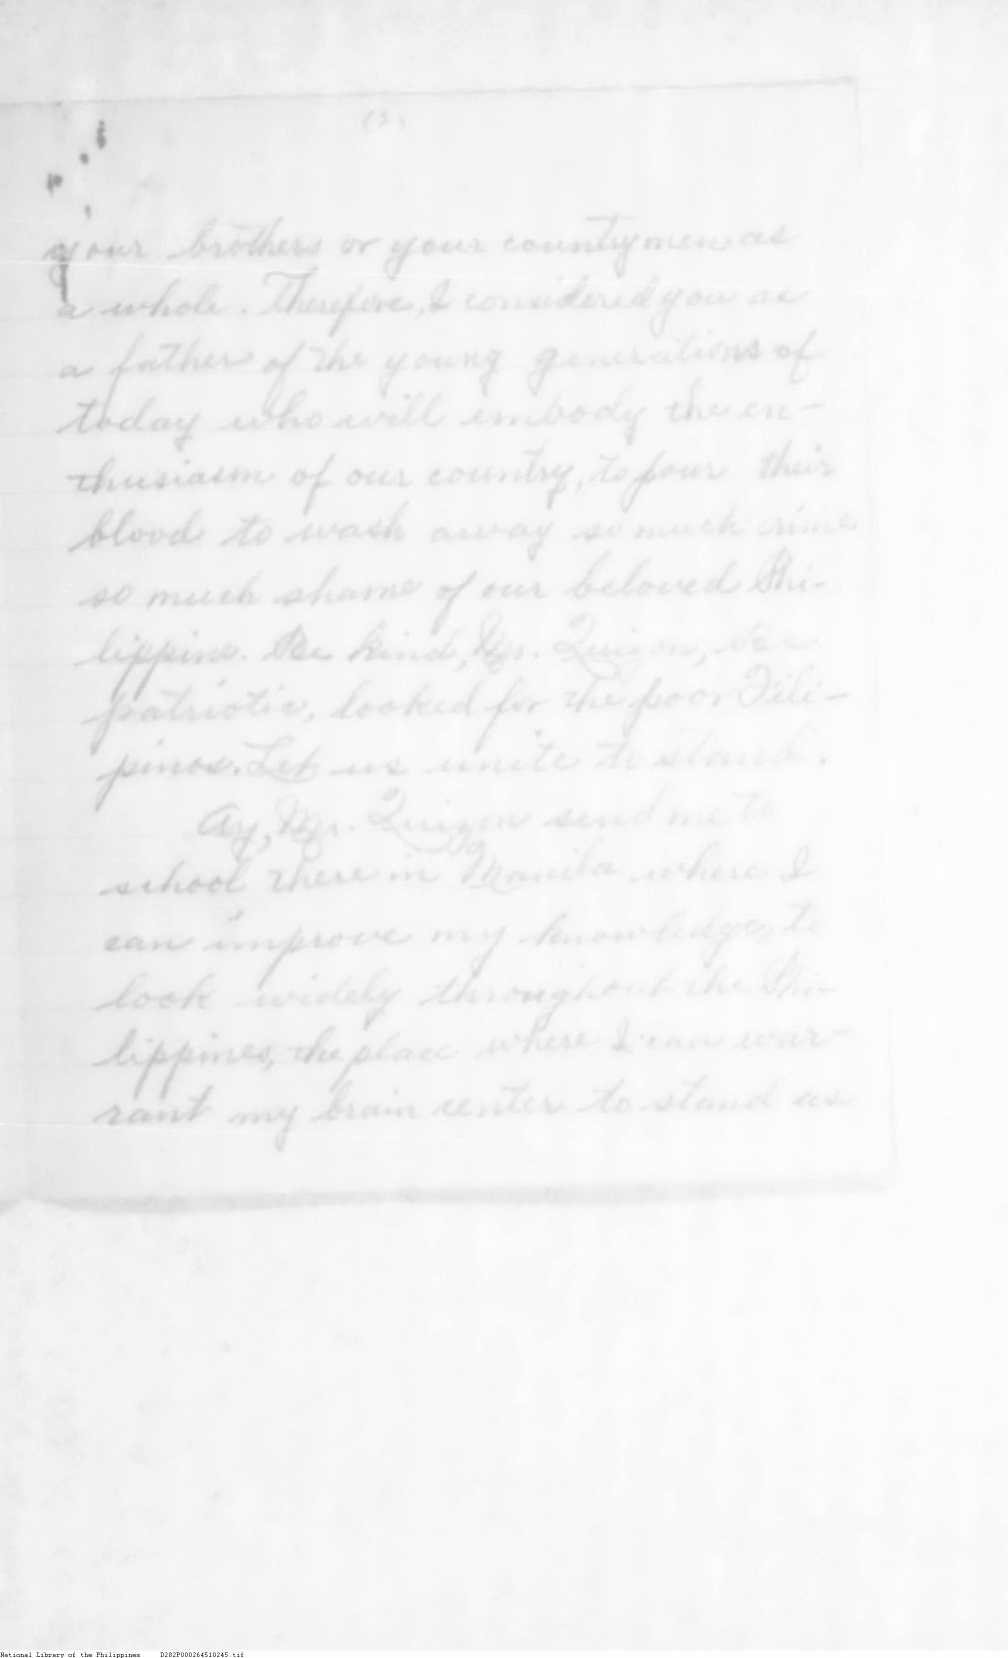 (2)
your brothers or your countrymen as
a whole. Therefore, I considered you as
a father of the young generations of
today who will embody the en-
thusiasm of our country, to pour their
blood to wash away so much crime
so much shame of our beloved Phi-
lippine. Be kind, Mr. Quizon, be
patriotic, looked for the poor Fili-
pinos. Let us unite to stand.
Ay, Mr. Quizon send me to
school there in Manila where I
can improve my knowledge, to
look widely throughout the Phi-
lippines, the place where I can war-
rant my brain center to stand as
National Library of the Philippines D282P000264510245.tif